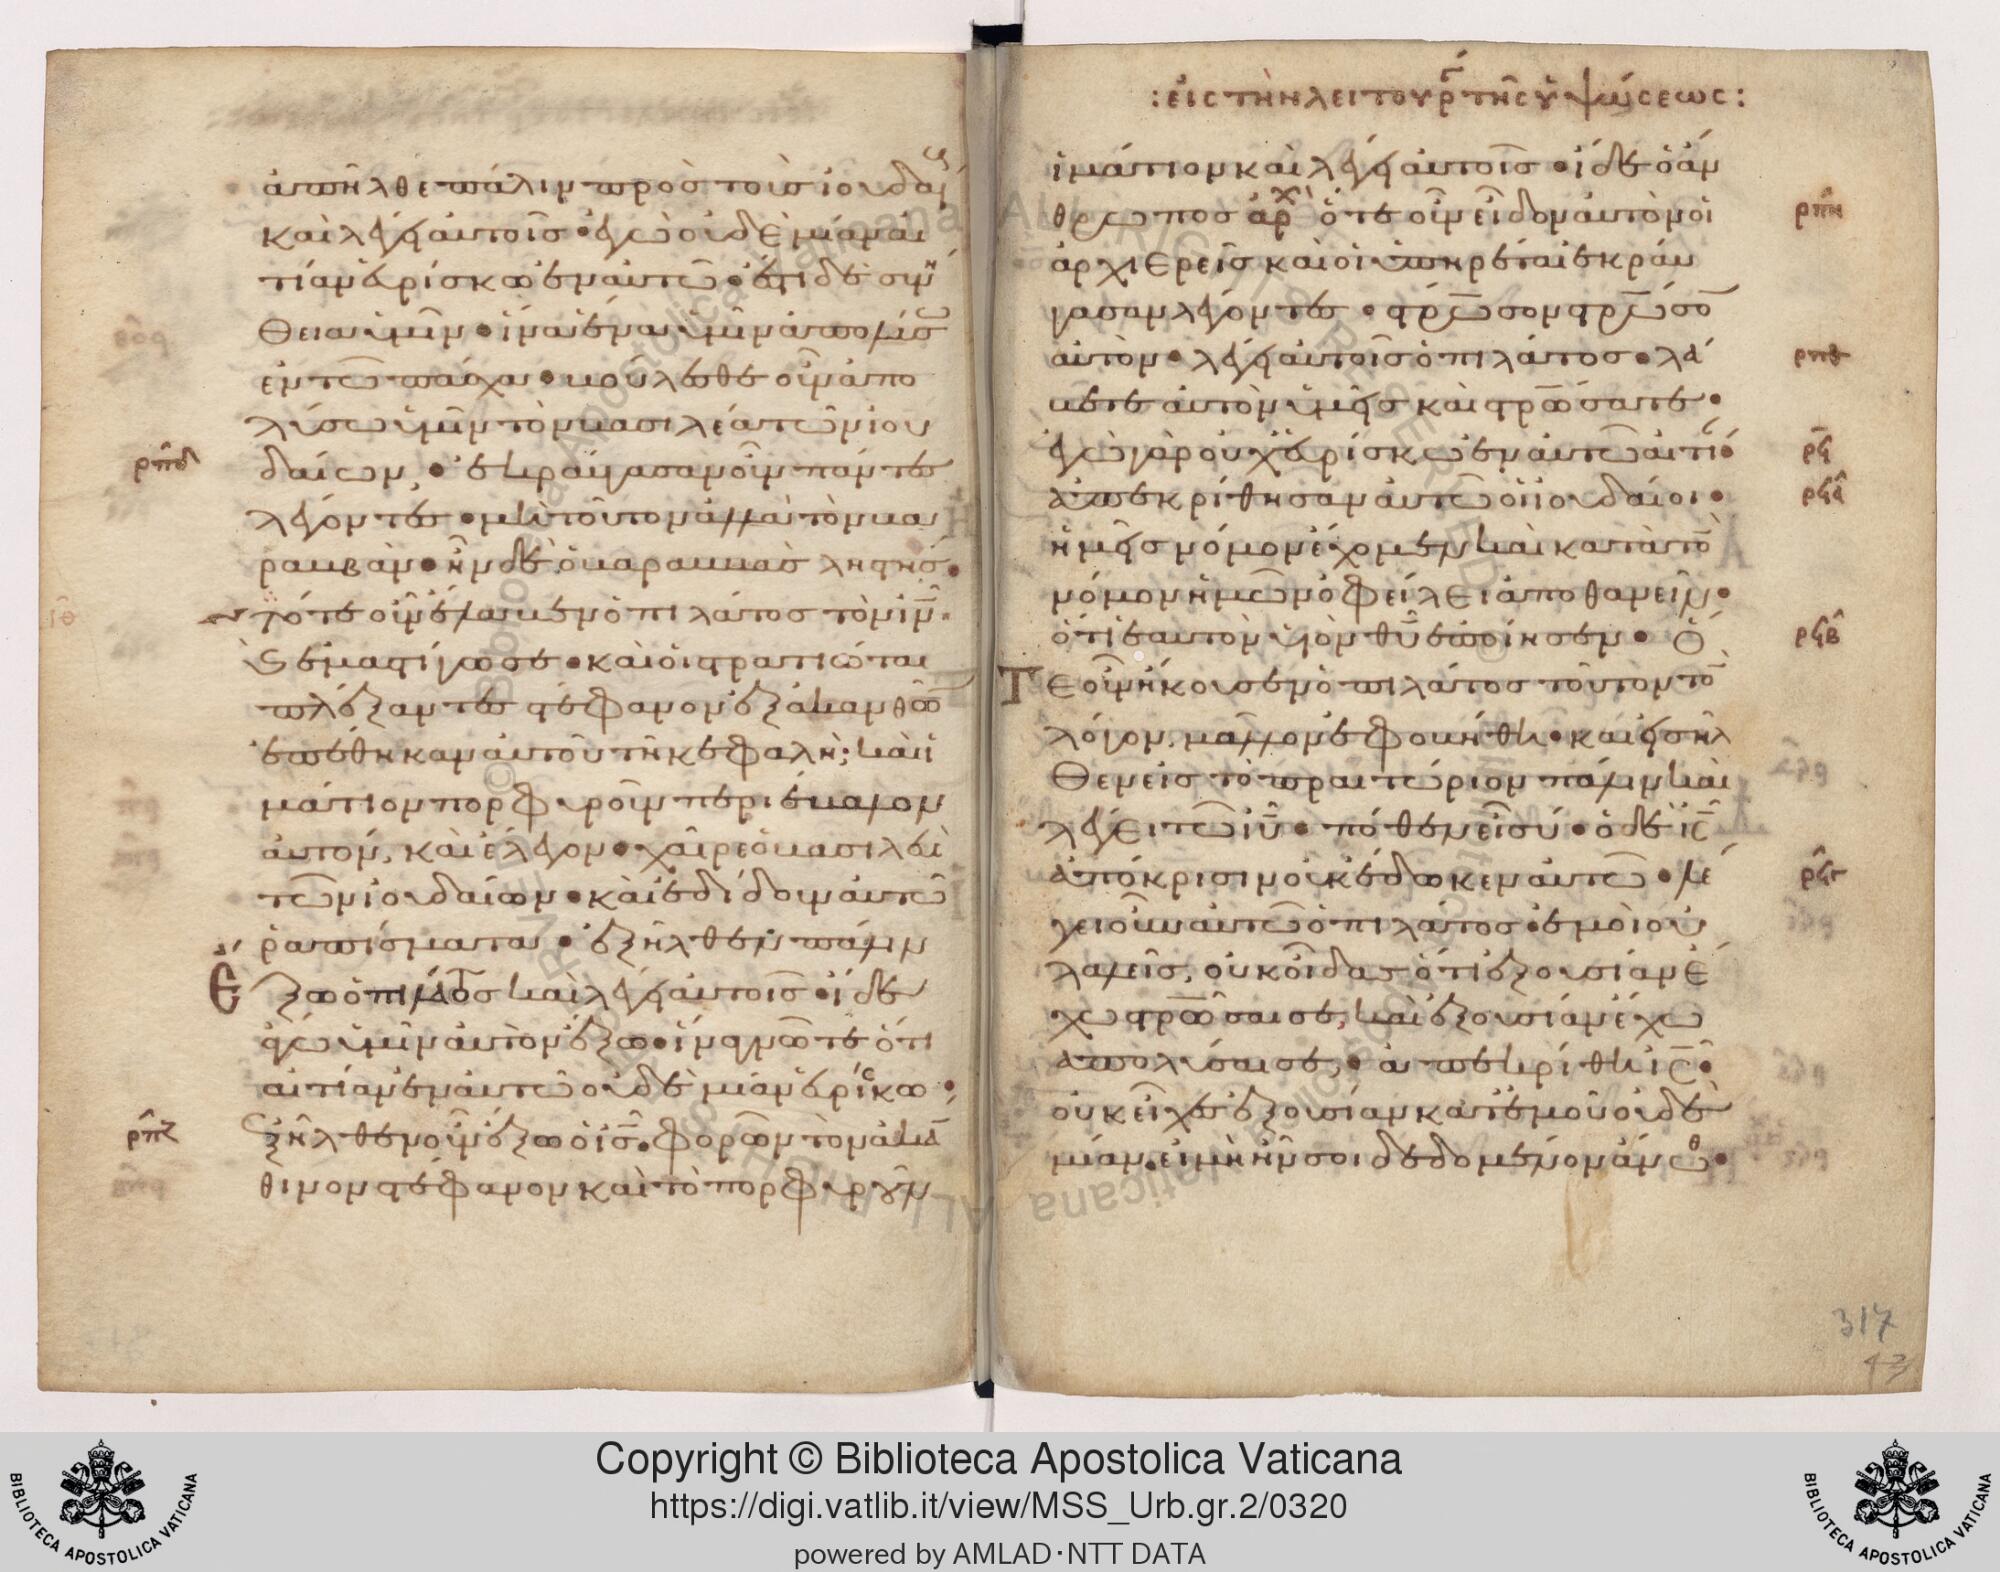 ἀπῆλθε πάλιν πρὸς τοὺς ἰουδαί
καὶ λέγει αὐτοῖς· ἐγὼ οὐδεμίαν αἰ
τίαν εὑρίσκω ἐν αὐτῶ· ἔστι δὲ συνή
θεια ὑμῖν· ἵνα ἕνα ὑμῖν ἀπολύσω
ἐν τῶ πάσχα· βούλεσθε οὖν ἀπο
λύσω ὑμῖν τὸν βασιλέα τῶν ἰου
ρπδ
δαίων, · ἐκραύγασαν οὖν πάντες
λέγοντες· μὴ τοῦτον ἀλλὰ τὸν βα
ραββάν· ἦν δὲ ὁ βαραββὰς ληστής·
τότε οὖν ἔλαβεν ὁ πιλάτος τὸν ιν
ἐμαστίγωσε· καὶ οἱ στρατιῶται
πλέξαντες στέφανον ἐξ ἀκανθῶν
ἐπέθηκαν αὐτοῦ τῆ κεφαλῆ; καὶ ἱ
μάτιον πορφυροῦν περιέβαλον
αὐτόν, καὶ ἔλεγον· χαῖρε ὁ βασιλεὺ
τῶν ἰουδαίων· καὶ ἐδίδουν αὐτῶ
ῥαπίσματα· ἐξῆλθεν πάλιν
Ἔξω ὁ πιλάτος καὶ λέγει αὐτοῖς· ἴδε
ἄγω ὑμῖν αὐτὸν ἔξω· ἵνα γνῶτε ὅτι
αἰτίαν ἐν αὐτῶ οὐδεμίαν εὑρίσκω·
ρπζ
ἐξῆλθεν οὖν ἔξω ὁ ις· φορῶν τὸν ἀκά
θινον στέφανον καὶ τὸ πορφυροῦν
:εἰς τὴν λειτουργ τῆς ὑψώσεως:
ἱμάτιον καὶ λέγει αὐτοῖς· ἴδε ὁ ἄν
ρπη
θρωπος ὅτε οὖν εἶδον αὐτὸν οἱ
ἀρχιερεῖς καὶ οἱ ὑπηρέται ἐκραύ
γασαν λέγοντες· στρωσον στρωσον
ρπθ
αὐτόν· λέγει αὐτοῖς ὁ πιλάτος· λά
βετε αὐτὸν ὑμεῖς καὶ στρώσατε·
ρϟ
ἐγὼ γὰρ οὐχ εὑρίσκω ἐν αὐτῶ αἰτί·
ρϟα
ἀπεκρίθησαν αὐτῶ οἱ ἰουδαίοι·
ἡμεῖς νόμον ἔχομεν καὶ κατὰ τὸν
νόμον ἡμῶν ὀφείλει ἀποθανεῖν·
ρϟβ
ὅτι ἑαυτὸν υἱὸν θυ ἐποίησεν· Ὅ
Τε οὖν ἤκουσεν ὁ πιλάτος τοῦτον τὸν
λόγον, μᾶλλον ἐφοβήθη· καὶ εἰσῆλ
θεν εἰς τὸ πραιτώριον πάλιν καὶ
λέγει τῶ ιυ· πόθεν εἶ σύ· ὁ δὲ ις
ρϟγ
ἀπόκρισιν οὐκ ἔδωκεν αὐτῶ· λέ
γει οὖν αὐτῶ ὁ πιλάτος· ἐμοὶ οὐ
λαλεῖς, οὐκ οἶδας ὅτι ἐξουσίαν ἔ
χω στρῶσαι σε, καὶ ἐξουσίαν ἔχω
ἀπολύσαι σε, · ἀπεκρίθη ις·
οὐκ εἶχες ἐξουσίαν κατ' ἐμοῦ οὐδε
μίαν· εἰ μὴ ἦν σοι δεδομένον ἄνωθ·
317
43
Copyright © Biblioteca Apostolica Vaticana
https://digi.vatlib.it/view/MSS_Urb.gr.2/0320
powered by AMLAD·NTT DATA
BIBLIOTECA APOSTOLICA VATICANA
BIBLIOTECA APOSTOLICA VATICANA